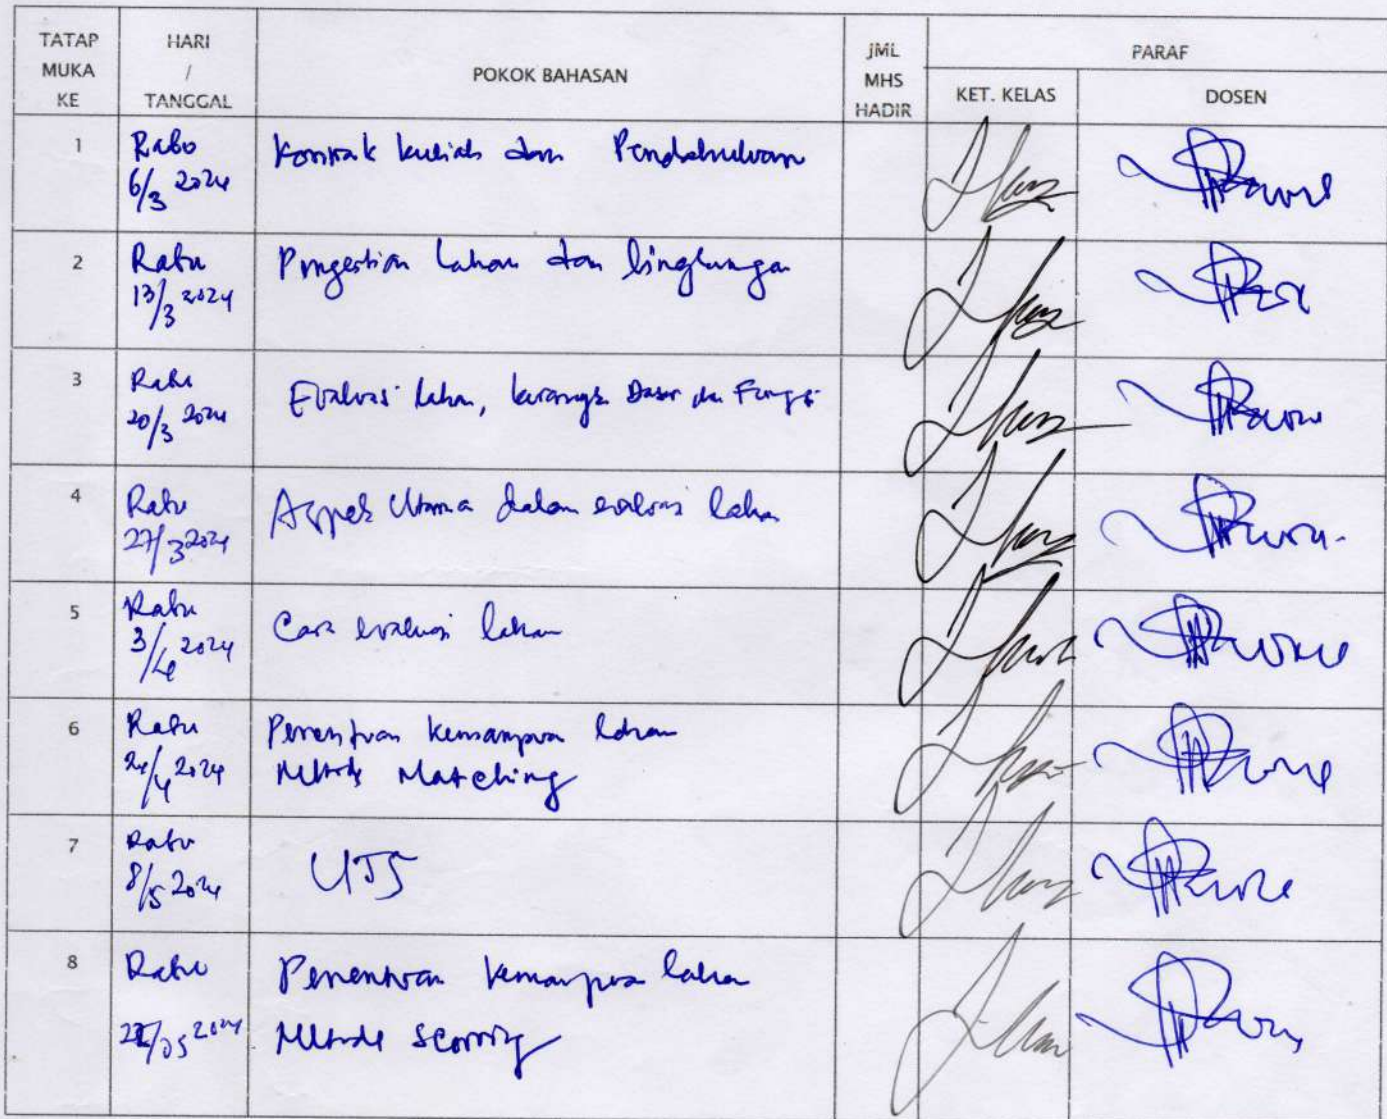 TATAP MUKA KE
HARI / TANGGAL
POKOK BAHASAN
JML MHS HADIR
PARAF
KET. KELAS
DOSEN
1
Rabu
6/3 2024
Kontrak kuliah dan Pendahuluan
2
Rabu
13/3 2024
Pengertian Lahan dan lingkungan
3
Rabu
20/3 2024
Evaluasi lahan, kerangka Dasar dan Fungsi
4
Rabu
27/3 2024
Aspek Utama dalam evaluasi lahan
5
Rabu
3/4 2024
Cara evaluasi lahan
6
Rabu
24/4 2024
Penentuan kemampuan lahan
Metode Matching
7
Rabu
8/5 2024
UTS
8
Rabu
22/05 2024
Penentuan kemampuan lahan
Metode Scorring